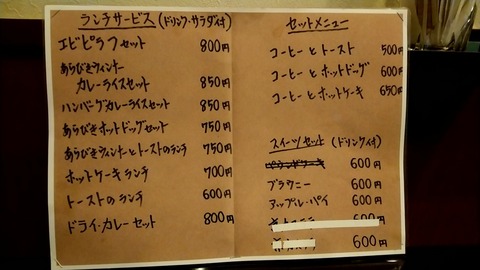 ランチサービス (ドリンク・サラダ付)
エビピラフセット 800円
あらびきウィンナー
カレーライスセット 850円
ハンバーグカレーライスセット 850円
あらびきホットドッグセット 750円
あらびきウィンナーとトーストのランチ 750円
ホットケーキランチ 700円
トーストのランチ 600円
ドライ・カレーセット 800円
セットメニュー
コーヒーとトースト 500円
コーヒーとホットドッグ 600円
コーヒーとホットケーキ 650円
スイーツセット (ドリンク付)
パウンドケーキ 600円
ブラウニー 600円
アップル・パイ 600円
600円
600円